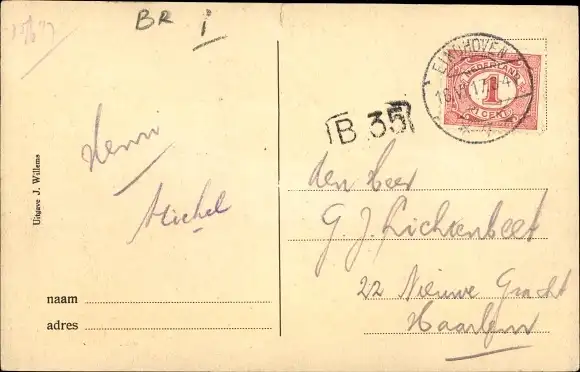 BR i
EINDHOVEN
NEDERLAND
1
1 CENT
B 35
Henri
Michel
den Heer
G. J. Lichtenbelt
22 Nieuwe Gracht
Haarlem
Uitgave J. Willems
naam
adres